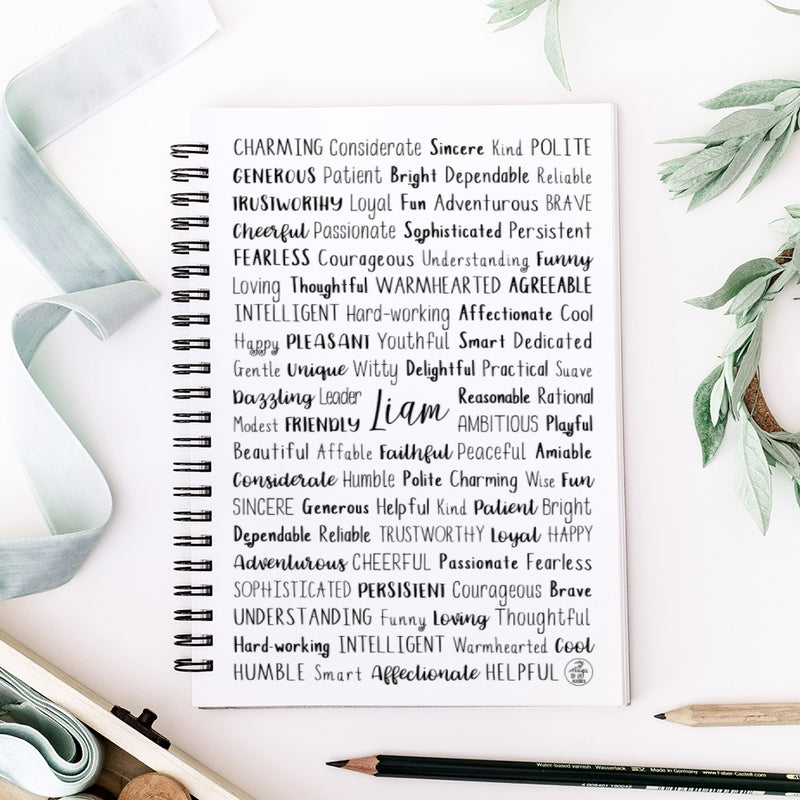 CHARMING Considerate Sincere Kind POLITE
GENEROUS Patient Bright Dependable Reliable
TRUSTWORTHY Loyal Fun Adventurous BRAVE
Cheerful Passionate Sophisticated Persistent
FEARLESS Courageous Understanding Funny
Loving Thoughtful WARMHEARTED AGREEABLE
INTELLIGENT Hard-working Affectionate Cool
Happy PLEASANT Youthful Smart Dedicated
Gentle Unique Witty Delightful Practical Suave
Dazzling Leader Reasonable Rational
Liam
Modest FRIENDLY AMBITIOUS Playful
Beautiful Affable Faithful Peaceful Amiable
Considerate Humble Polite Charming Wise Fun
SINCERE Generous Helpful Kind Patient Bright
Dependable Reliable TRUSTWORTHY Loyal HAPPY
Adventurous CHEERFUL Passionate Fearless
SOPHISTICATED PERSISTENT Courageous Brave
UNDERSTANDING Funny Loving Thoughtful
Hard-working INTELLIGENT Warmhearted Cool
HUMBLE Smart Affectionate HELPFUL
Water-based varnish Wasserlack Made in Germany www.Faber-Castell.com